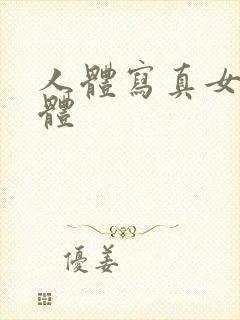 人體寫真女
體
優姜